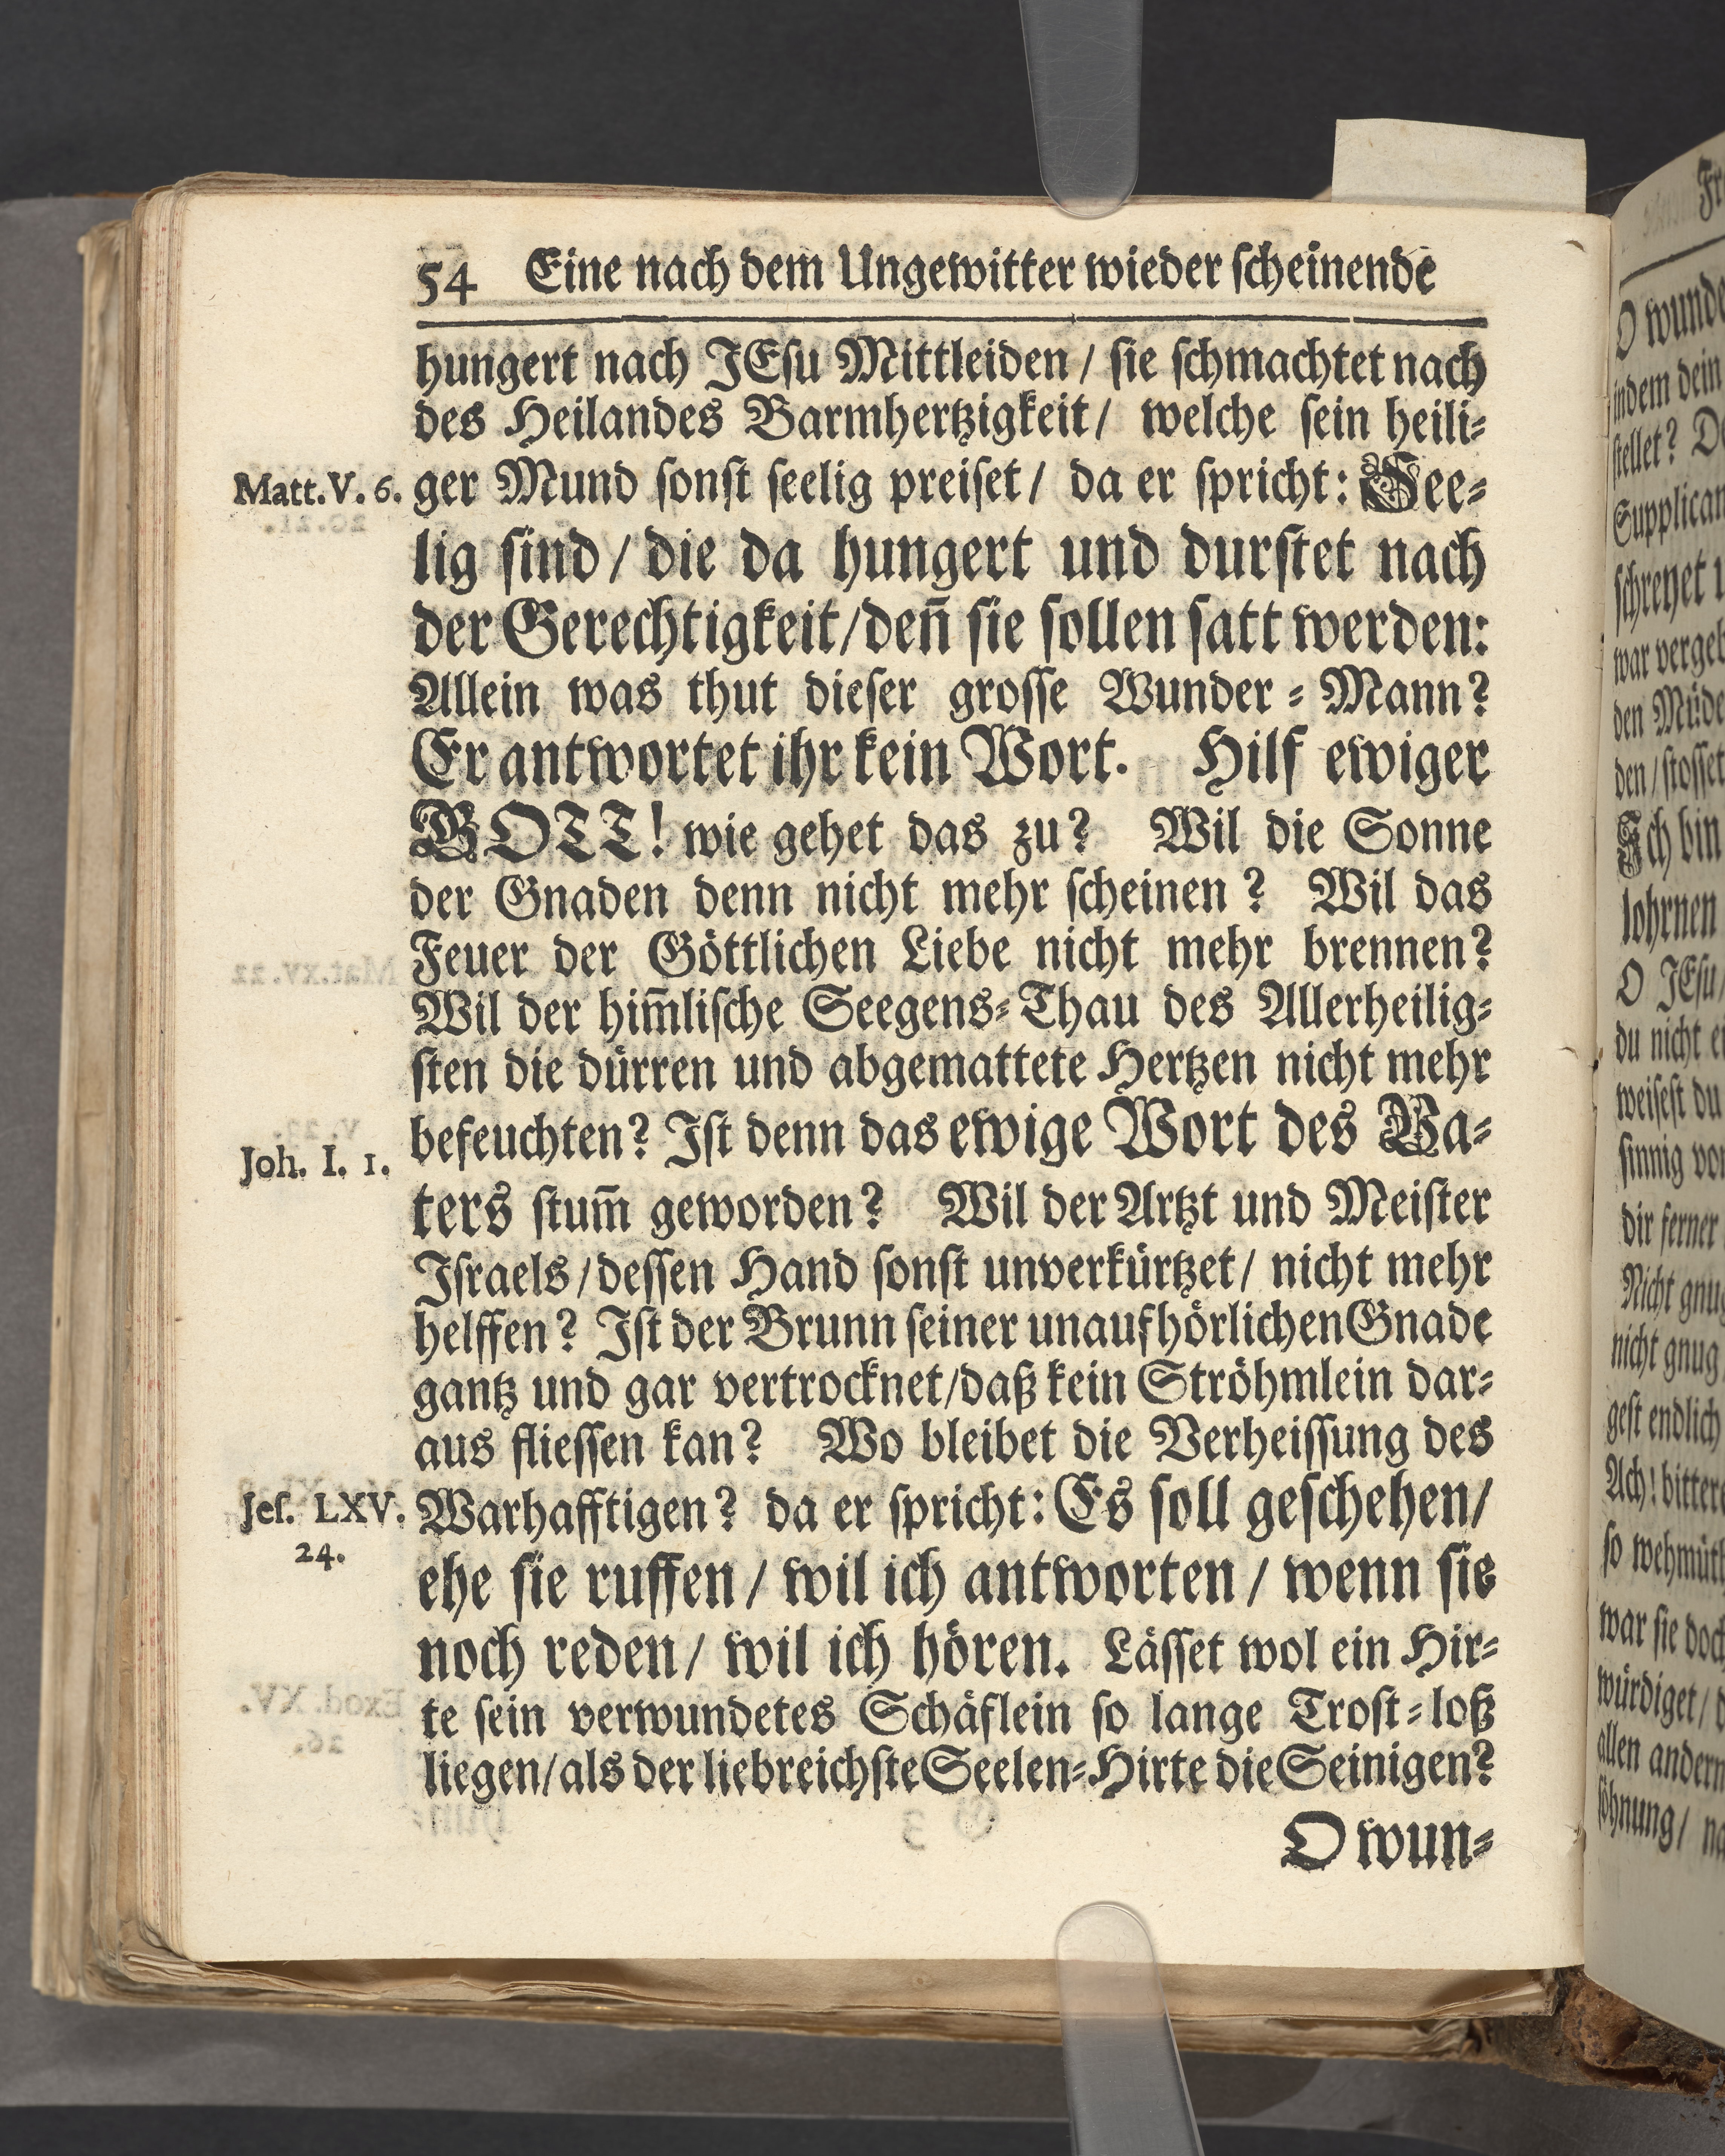 54 Eine nach dem Ungewitter wieder scheinende
hungert nach JEsu Mittleiden / sie schmachtet nach
des Heilandes Barmhertzigkeit / welche sein heili⸗
Matt. V. 6.
ger Mund sonst seelig preiset / da er spricht: See⸗
lig sind / die da hungert und durstet nach
der Gerechtigkeit / deñ sie sollen satt werden:
Allein was thut dieser grosse Wunder⸗Mann?
Er antwortet ihr kein Wort. Hilf ewiger
GOTT! wie gehet das zu? Wil die Sonne
der Gnaden denn nicht mehr scheinen? Wil das
Feuer der Göttlichen Liebe nicht mehr brennen?
Wil der him̃lische Seegens⸗Thau des Allerheilig⸗
sten die dürren und abgemattete Hertzen nicht mehr
Joh. I. 1.
befeuchten? Ist denn das ewige Wort des Va⸗
ters stum̃ geworden? Wil der Artzt und Meister
Israels / dessen Hand sonst unverkürtzet / nicht mehr
helffen? Ist der Brunn seiner unaufhörlichen Gnade
gantz und gar vertrocknet / daß kein Ströhmlein dar⸗
aus fliessen kan? Wo bleibet die Verheissung des
Jes. LXV.
24.
Warhafftigen? da er spricht: Es soll geschehen /
ehe sie ruffen / wil ich antworten / wenn sie
noch reden / wil ich hören. Lässet wol ein Hir⸗
te sein verwundetes Schäflein so lange Trost⸗loß
liegen / als der liebreichste Seelen⸗Hirte die Seinigen?
O wun⸗
O wunde
indem dein
stellet?
Supplican
schreyet
war vergeb
den Müde
den / stosset
Ich bin
lohrnen
O JEsu /
du nicht
weisest du
sinnig
dir ferner
Nicht gnug
nicht gnug
gest endlich
Ach! bittere
so wehmüt
war sie doch
würdiget /
allen andern
söhnung /